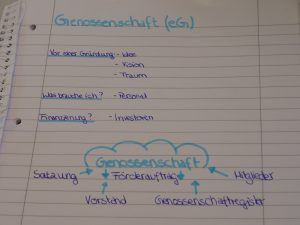 Genossenschaft (eG)
Vor einer Gründung: - Idee
- Vision
- Traum
Was brauche ich? - Personal
Finanzierung? - Investoren
Genossenschaft
Satzung Förderauftrag Mitglieder
Vorstand Genossenschaftsregister